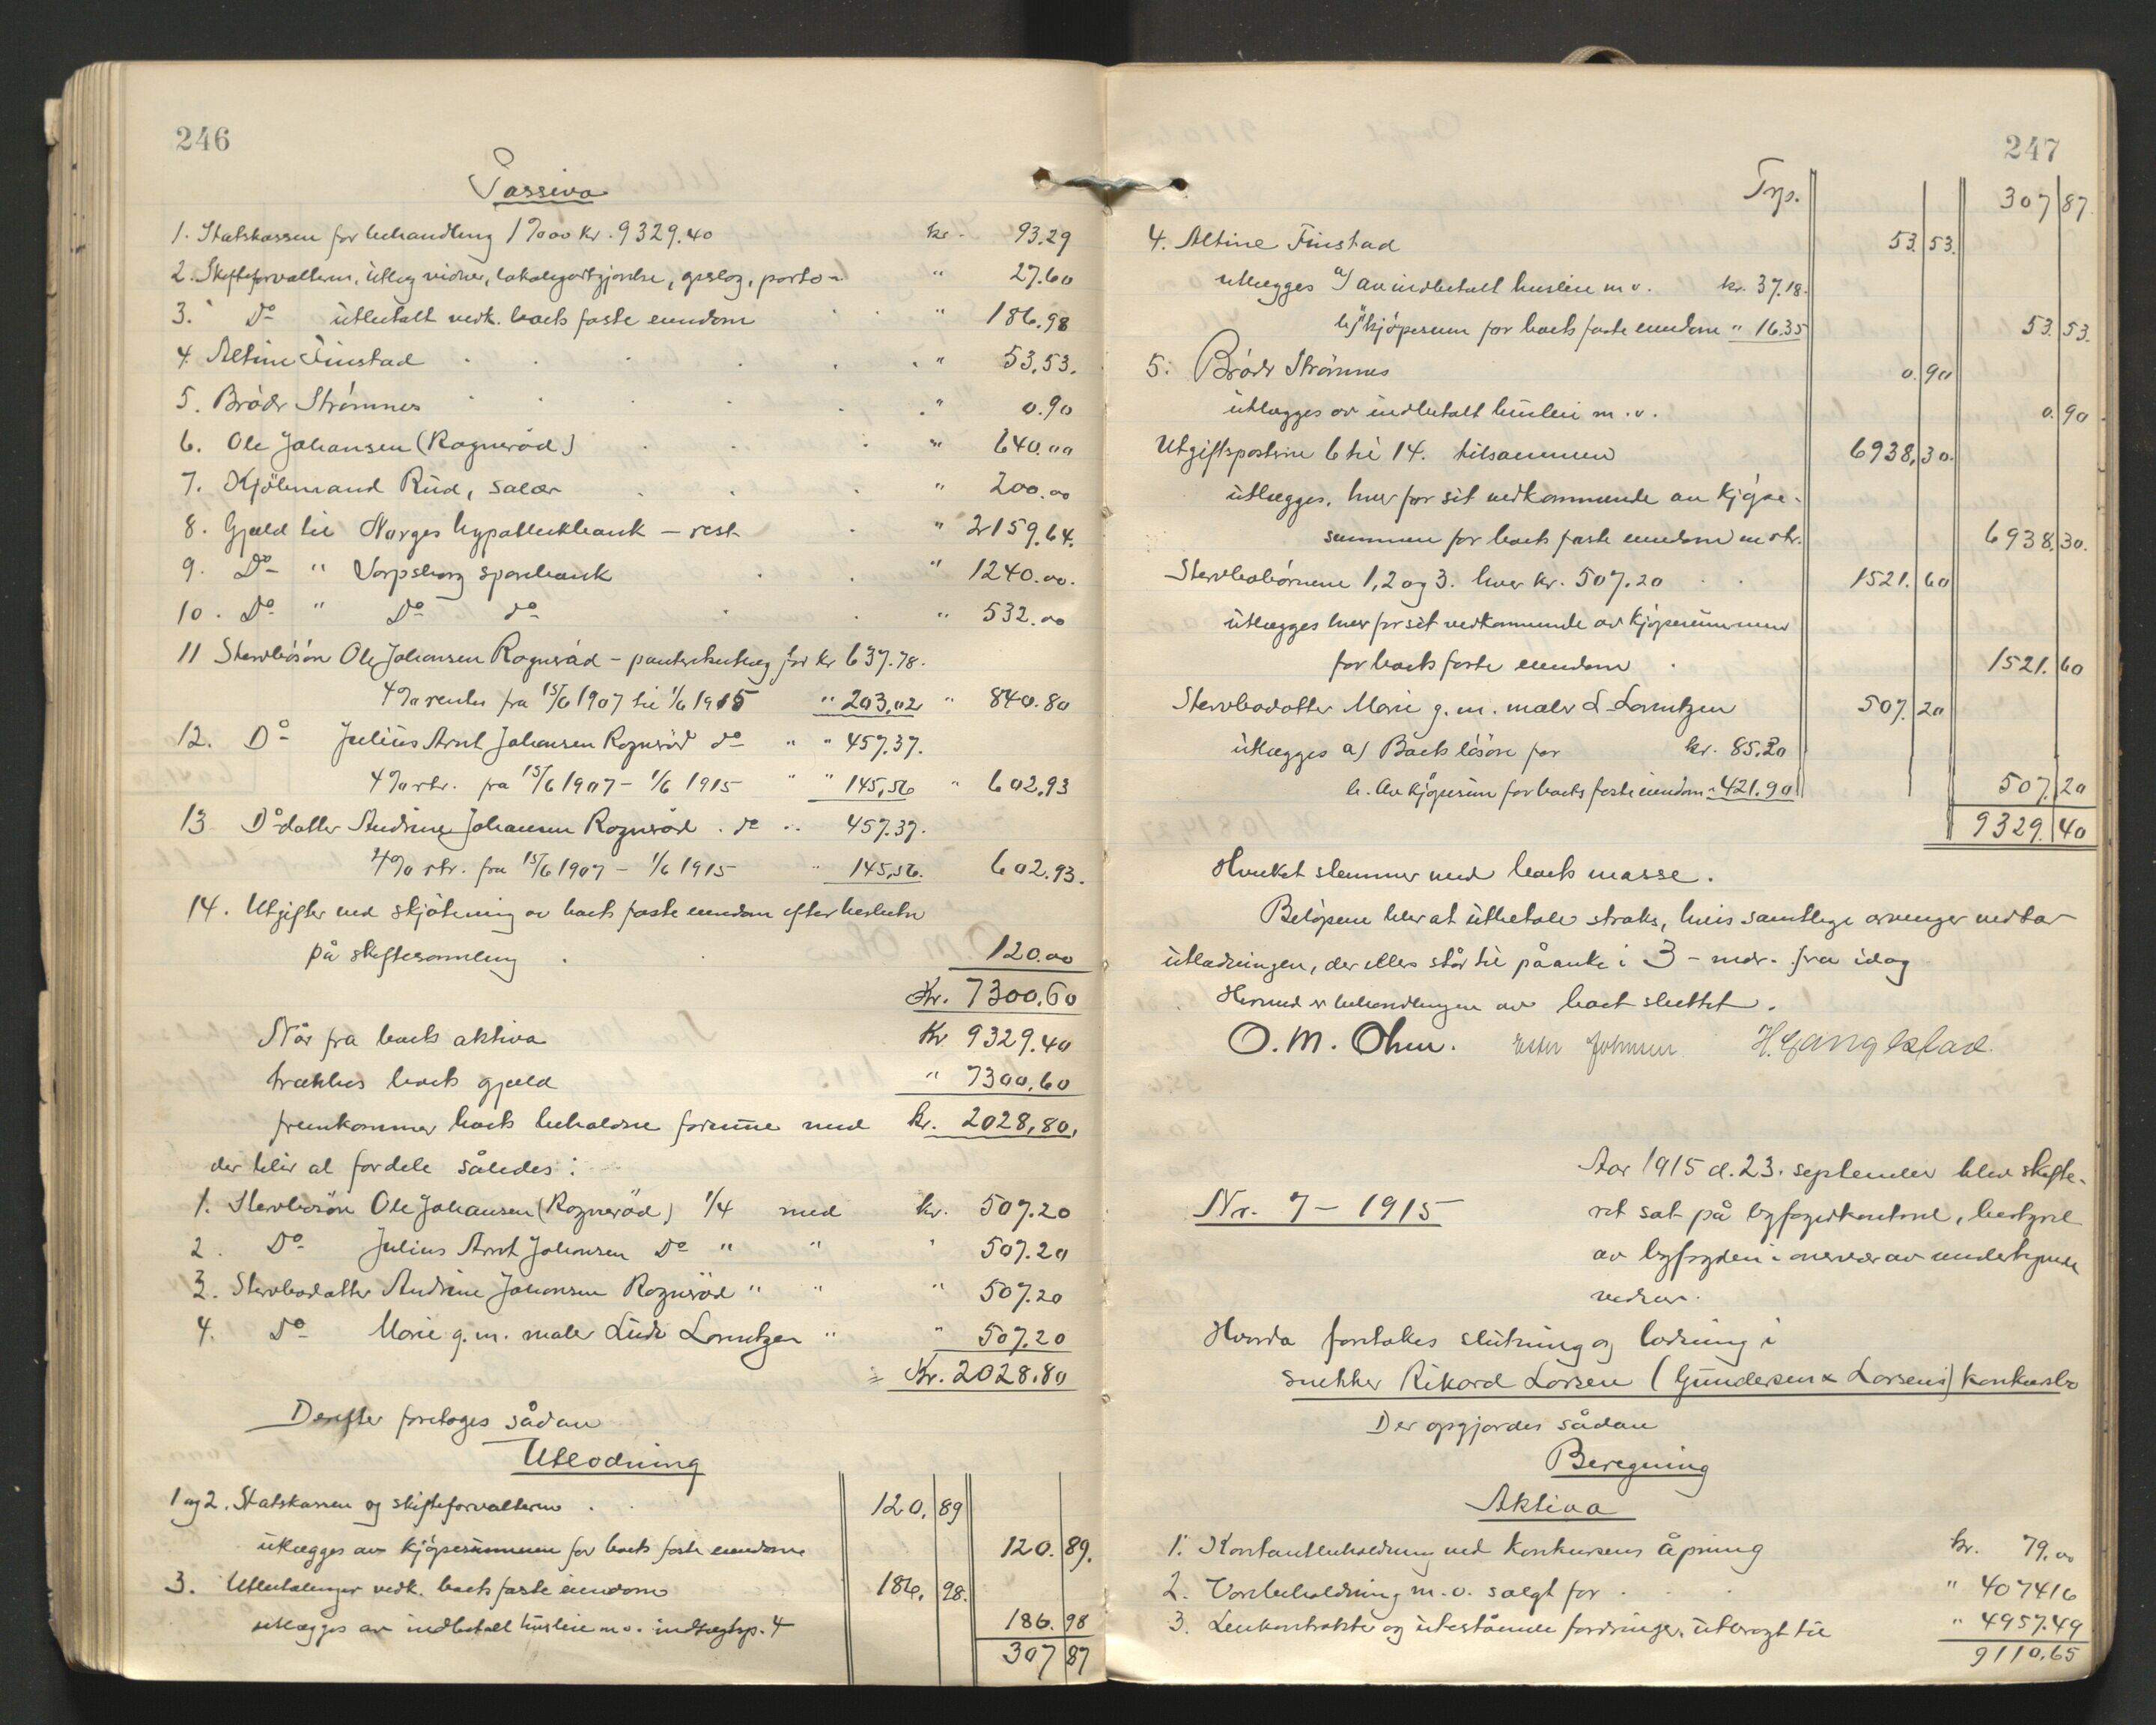 246
Passiva
1. Statskassen for behandling 1% av kr. 9329.40 kr. 93.29
2. Skifteforvalteren, utlæg vidner, lokalgodtgjørelse, porto " 27.60
3. Do utbetalt vedk. boets faste eiendom " 186.98
4. Altine Finstad " 53.53.
5. Brödr Strömnes " 0.90
6. Ole Johansen (Rogneröd) " 640.00
7. Kjölmand Rud, salær " 200.00
8. Gjæld til Norges hypothekbank – rest " 2159.64.
9. Do " Sarpsborg sparebank " 1240.00.
10. Do " Do do " 532.00
11 Stervbosön Ole Johansen Rogneröd – panterhutlæg for kr 637.78.
4% renter fra 15/6 1907 til 1/6 1915 " 203,02 " 840.80
12. Do Julius Arnt Johansen Rogneröd do " " 457.37.
4% rtr. fra 15/6 1907 – 1/6 1915 " " 145,56 " 602,93
13 Do datter Andrine Johansen Rogneröd . do .. 457.37.
4% rtr. fra 15/6 1907 – 1/6 1915 " 145,56. 602.93.
14. Utgifter ved skjötning av boets faste eiendom efter beslutn
på skiftesamling 120.00
Kr. 7300.60
Når fra boets aktiva Kr 9329.40
trækkes boets gjæld " 7300.60
fremkommer boets beholdne formue med kr. 2028,80.
der blir at fordele således:
1. Stervbosön Ole Johansen (Rogneröd) 1/4 med kr. 507.20
2. Do Julius Arnt Johansen Do " " " 507.20
3. Stervbodatter Andrine Johansen Rogneröd " " " 507.20
4. Do Marie g. m. maler Ludv Lorentzen " " 507.20
= Kr. 2028.80
Derefter foretoges sådan
Utlodning
1 og 2. Statskassen og skifteforvalteren 120. 89
utlægges av kjöpesummen for boets faste eiendom 120. 89.
3. Utbetalinger vedk. boets faste eiendom 186. 98.
utlægges av indbetalt husleie m.v. indtægtsp. 4 186. 98
307 87
247
Trsp. 307 87
4. Altine Finstad 53. 53.
utlægges a) av indbetalt husleie m.v. kr. 37.18.
b) " kjöpesum for boets faste eiendom " 16.35 53. 53.
5. Brödr Strömnes 0. 90
utlægges av indbetalt husleie m.v. 0. 90
Utgiftsposterne 6 til 14. tilsammen 6938. 30.
utlægges, hver for sit vedkommende av kjöpe-
summen for boets faste eiendom m rtr. 6938. 30.
Stervbobörnene 1, 2 og 3. hver kr. 507.20 1521. 60
utlægges hver for sit vedkommende av kjöpesummen
for boets faste eiendom 1521. 60
Stervbodatter Marie g. m. maler L Lorentzen 507. 20
utlægges a) Boets lösöre for kr. 85.30
b. Av kjöpesum for boets faste eiendom " 421.90 507. 20
9329. 40
Hvilket stemmer med boets masse.
Belöpene blev at utbetale straks, hvis samtlige arvinger vedtar
utlodningen, der ellers står til påanke i 3 – mdr. fra idag
Hermed er behandlingen av boet sluttet.
O. M. Ohm. Ester Johnsen H. Gangestad.
Nr. 7 – 1915
Aar 1915 d. 23. september blev skifte-
ret sat på byfogedkontoret, bestyret
av byfogden i nærvær av undertegnede
vidner.
Hvorda foretokes slutning og lodning i
snekker Rikard Larsen (Gundersen & Larsens) konkursbo
Der opgjordes sådan
Beregning
Aktiva
1. Kontantbeholdning ved konkursens åpning kr. 79.00
2. Varebeholdning m.v. solgt for " 4074 16
3. Leiekontrakter og utestående fordringer, utbragt til " 4957.49
9110.65